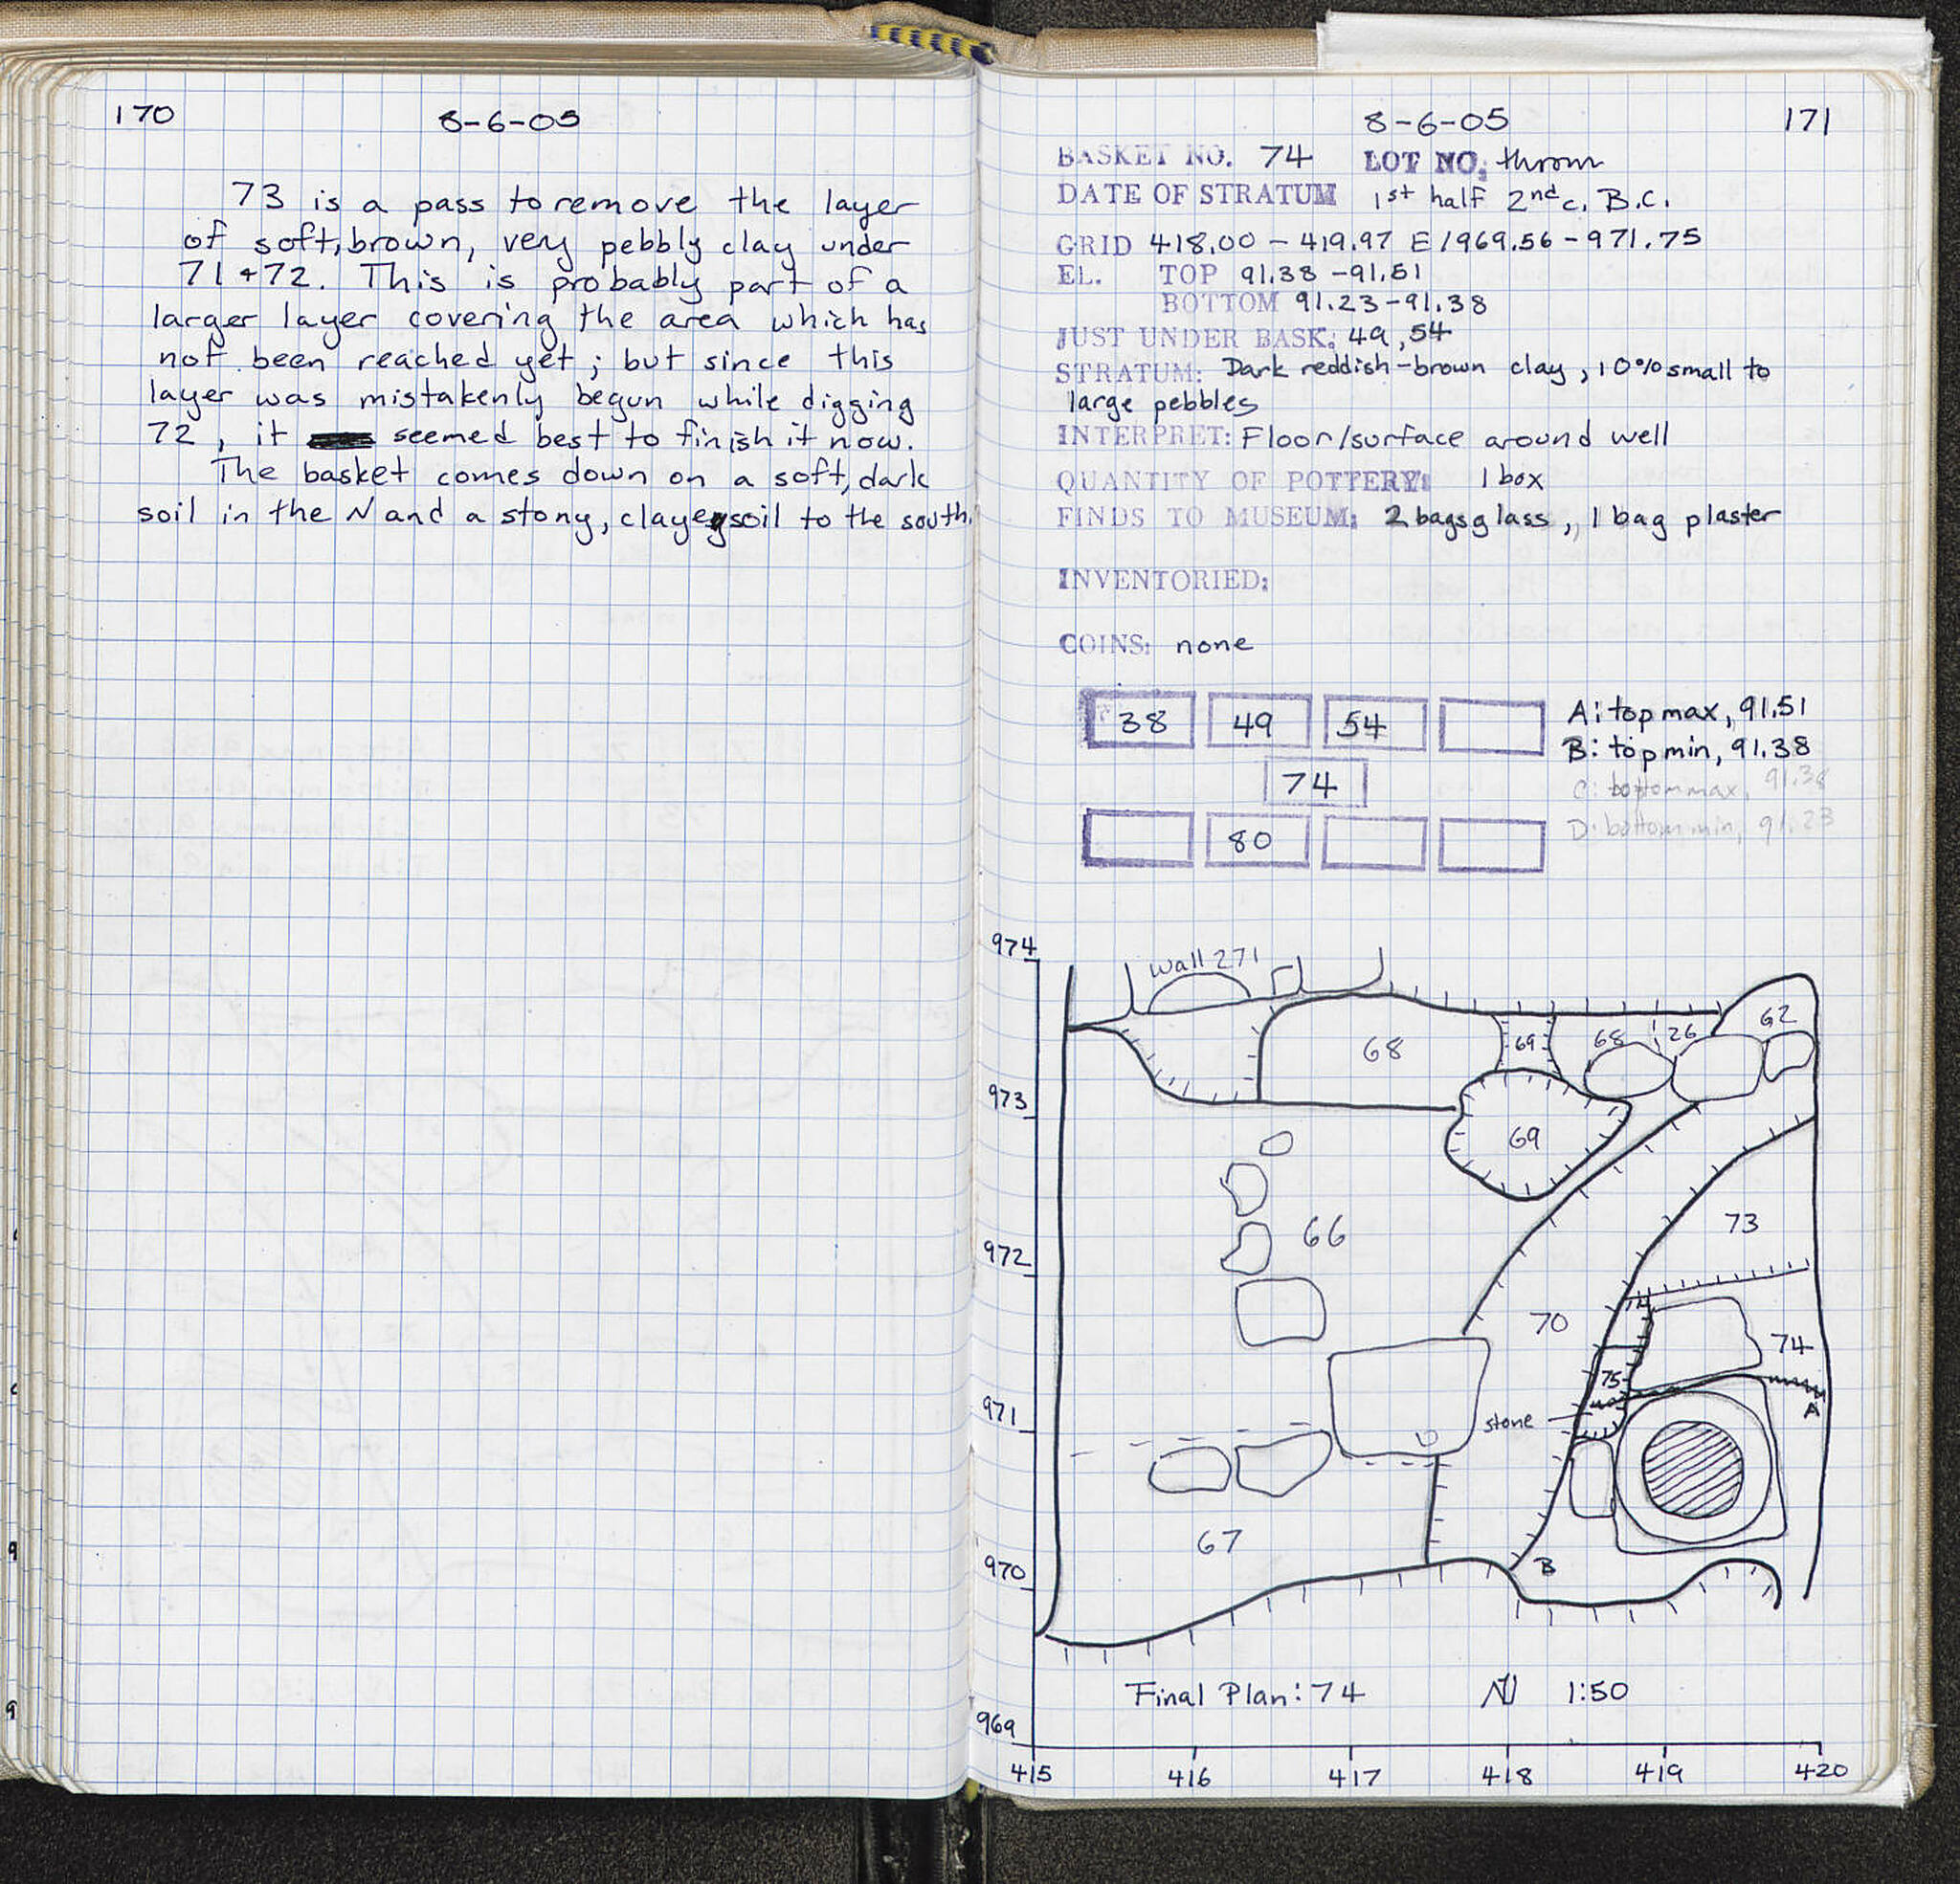 170
8-6-05
73 is a pass to remove the layer
of soft, brown, very pebbly clay under
71+72. This is probably part of a
larger layer covering the area which has
not been reached yet; but since this
layer was mistakenly begun while digging
72, it seemed best to finish it now.
The basket comes down on a soft, dark
soil in the N and a stony, clayey soil to the south.
8-6-05
171
BASKET NO. 74 LOT NO: thrown
DATE OF STRATUM 1st half 2nd c. B.C.
GRID 418.00 - 419.97 E / 969.56 - 971.75
EL. TOP 91.38 - 91.51
BOTTOM 91.23 - 91.38
JUST UNDER BASK: 49, 54
STRATUM: Dark reddish-brown clay, 10% small to
large pebbles
INTERPRET: Floor/surface around well
QUANTITY OF POTTERY: 1 box
FINDS TO MUSEUM: 2 bags glass, 1 bag plaster
INVENTORIED:
COINS: none
38 49 54
A: top max, 91.51
B: top min, 91.38
74
C: bottom max, 91.38
80
D: bottom min, 91.23
974
wall 271
62
68 69 68 26
973
69
66
73
972
70
74
74
75
971
stone
A
67
970
B
Final Plan: 74 N 1:50
969
415 416 417 418 419 420